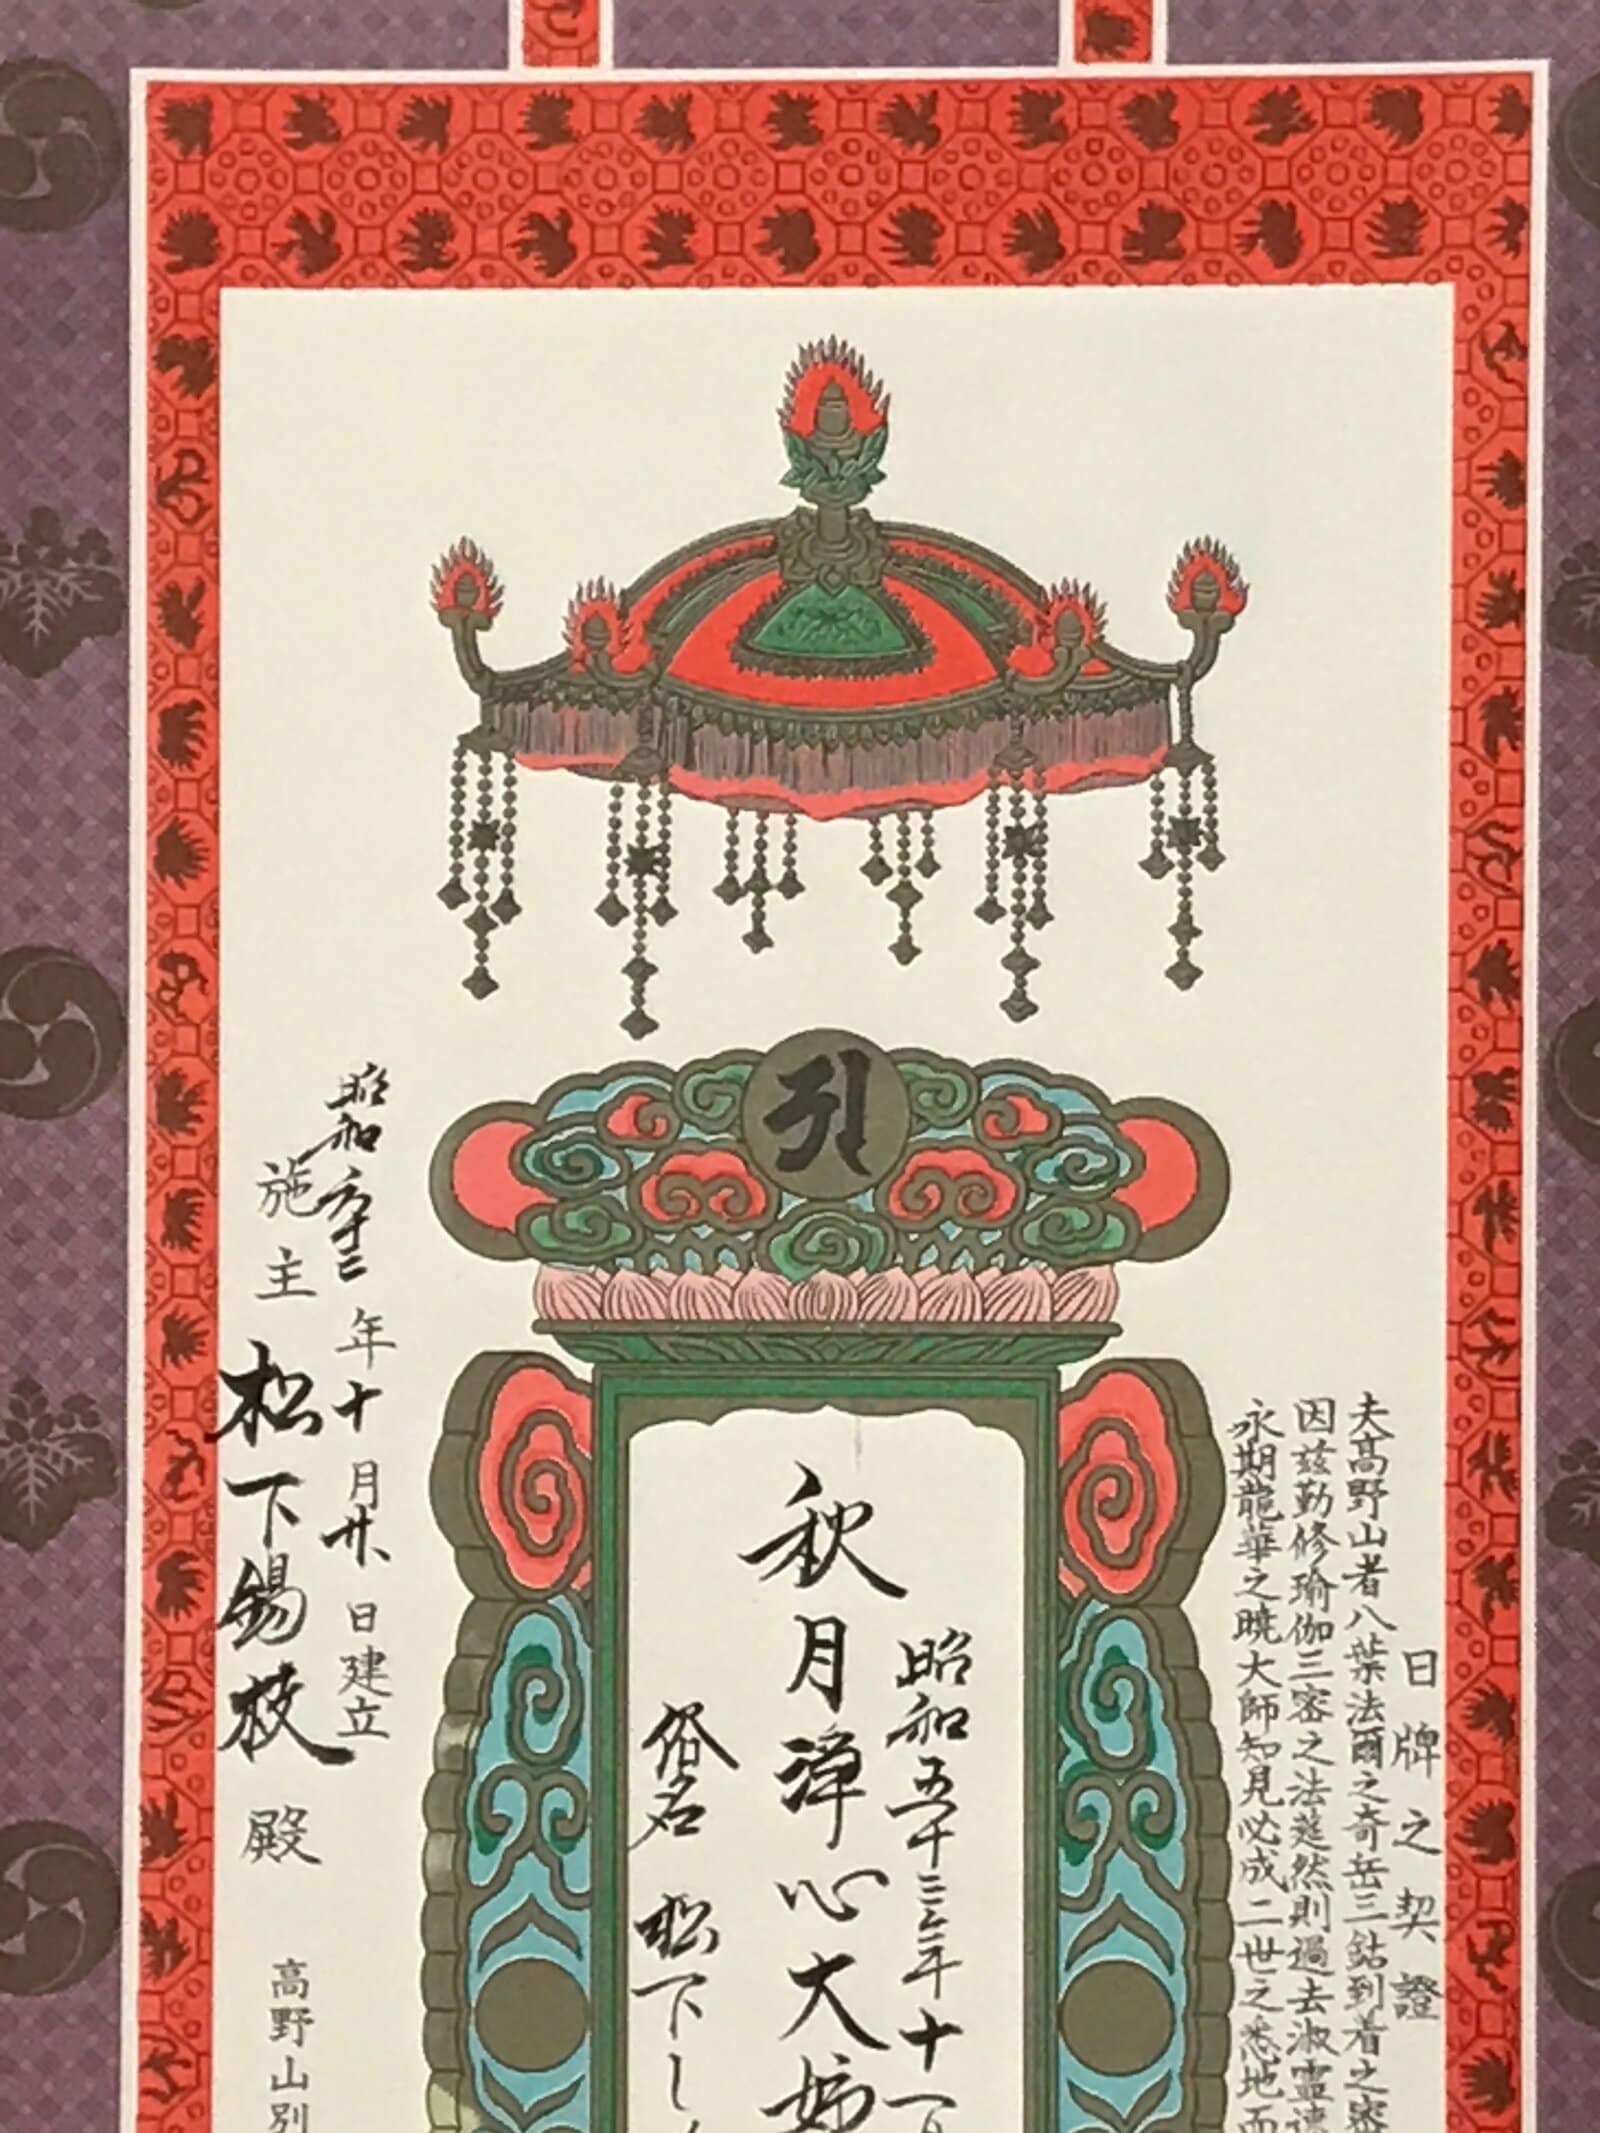 日牌之契證
夫髙野山者八葉法爾之奇岳三鈷到着之密
因茲勤修瑜伽三密之法莚然則過去淑靈速
永期龍華之曉大師知見必成二世之悉地而
昭和五十三年十一
秋月淨心大姉
俗名 松下し
昭和六十二年十月廿八日建立
施主 松下錫枝 殿
高野山別